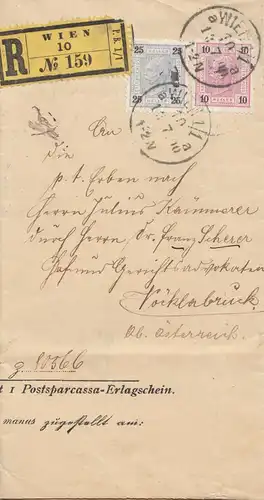 WIEN
10
R № 159
25 25
10 10
An
die
p. t. Erben nach
Herrn Julius Kammerer
durch Herrn Dr. Franz Scherer
Hof und Gerichtsadvokaten
Vöcklabruck
Ob. Österreich.
z. 80566
t 1 Postsparcassa-Erlagschein.
manus zugestellt am: